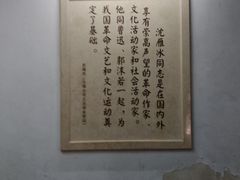 沈雁冰同志是在国内外
享有崇高声望的革命作家、
文化活动家和社会活动家。
他同鲁迅、郭沫若一起,为
我国革命文艺和文化运动奠
定了基础。